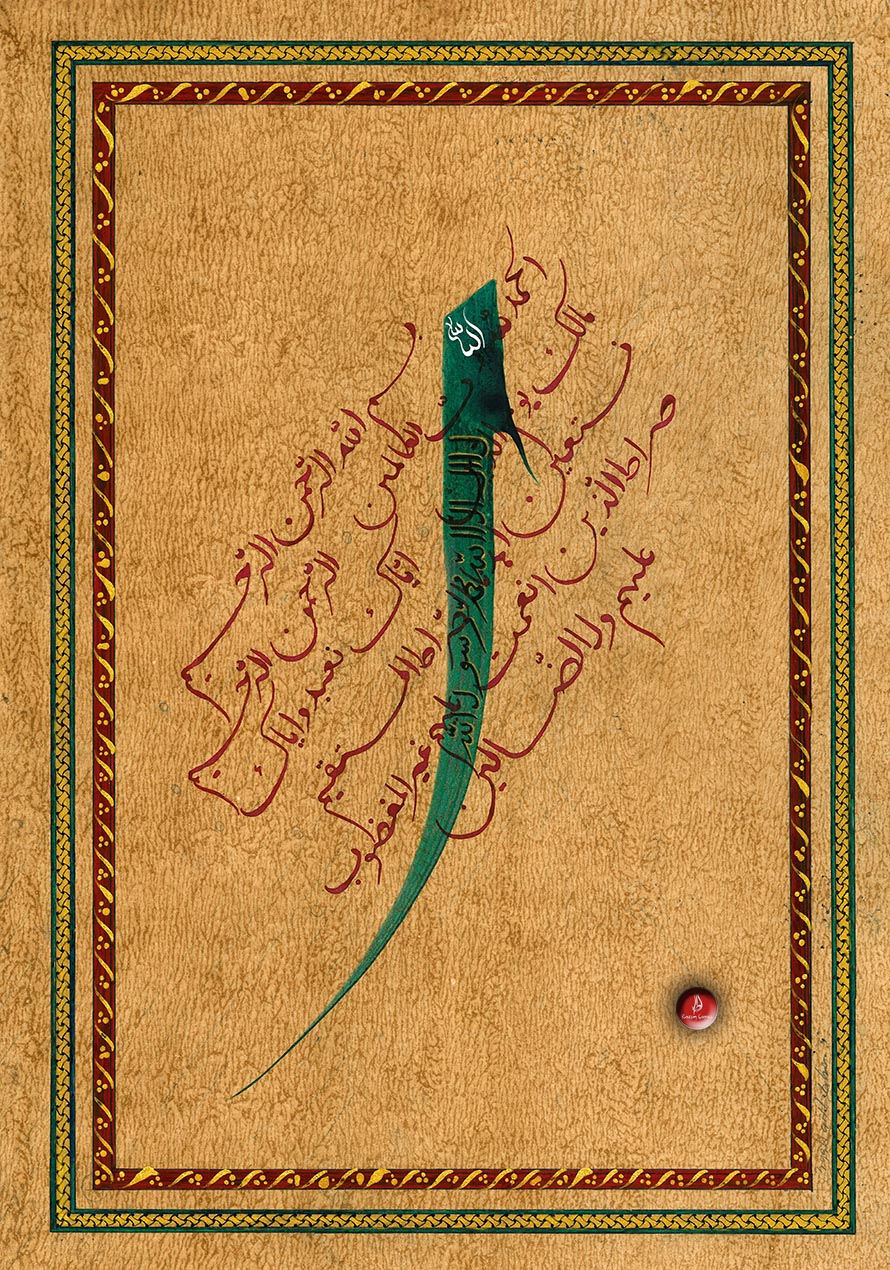 بسم الله الرحمن الرحيم
الحمد لله رب العالمين الرحمن الرحيم
مالك يوم الدين اياك نعبد واياك
نستعين اهدنا الصراط المستقيم
صراط الذين انعمت عليهم غير المغضوب
عليهم ولا الضالّين
الله
لا اله الا الله محمد رسول الله